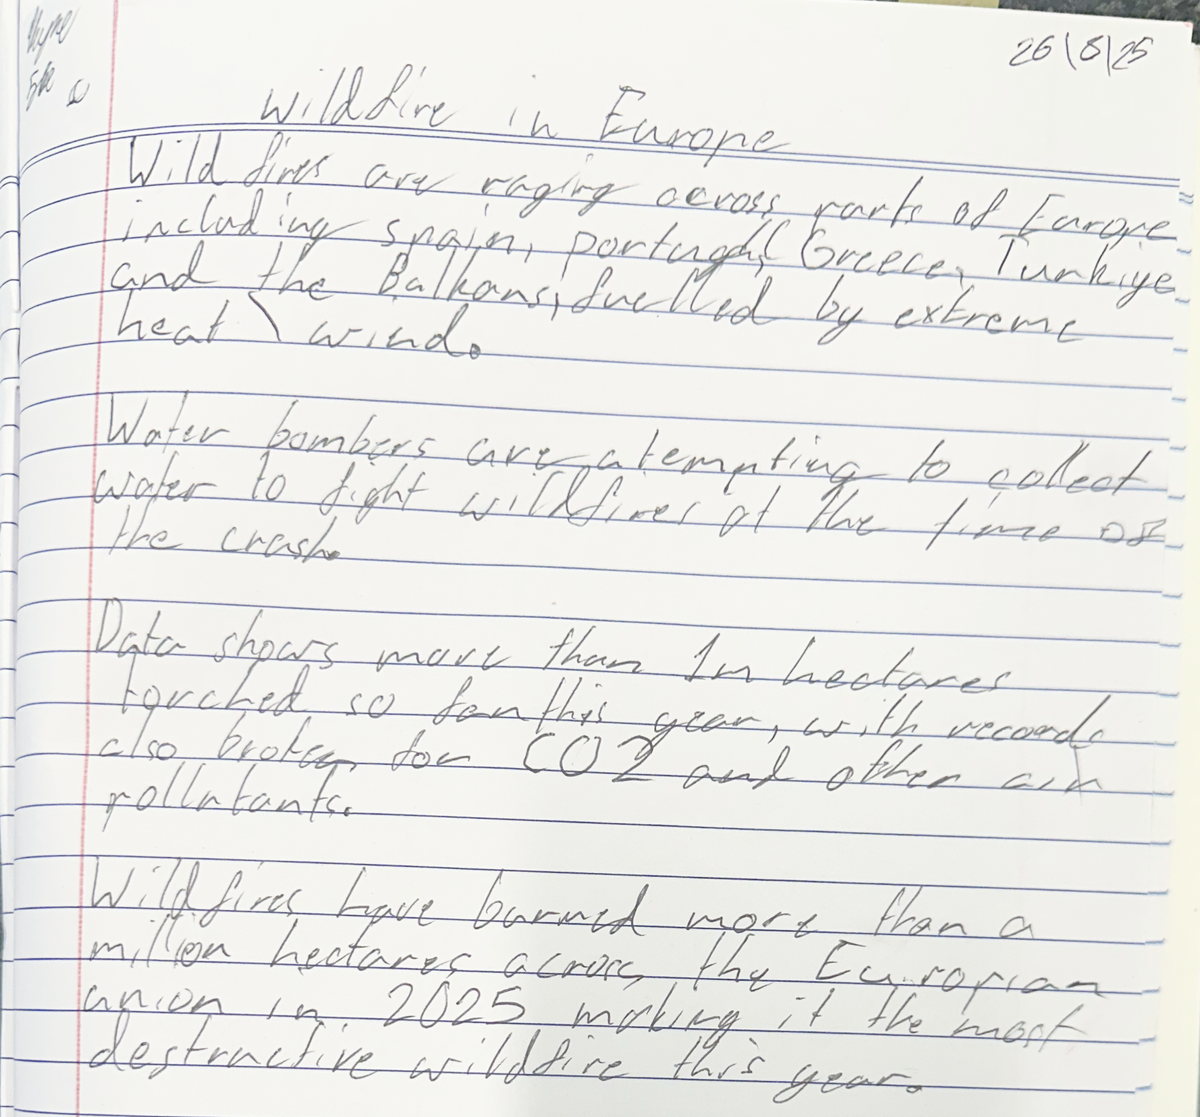 26/8/25
wildfire in Europe
Wild fires are raging across parts of Europe
including spain, portugal, Greece, Turkiye
and the Balkans, fuelled by extreme
heat \ wind.
Water bombers are atempting to collect
water to fight wildfires at the time of
the crash.
Data shows more than 1m hectares
torched so far this year, with records
also broken for CO2 and other air
pollutants.
Wildfires have burned more than a
million hectares across the Europian
union in 2025 making it the most
destructive wildfire this year.